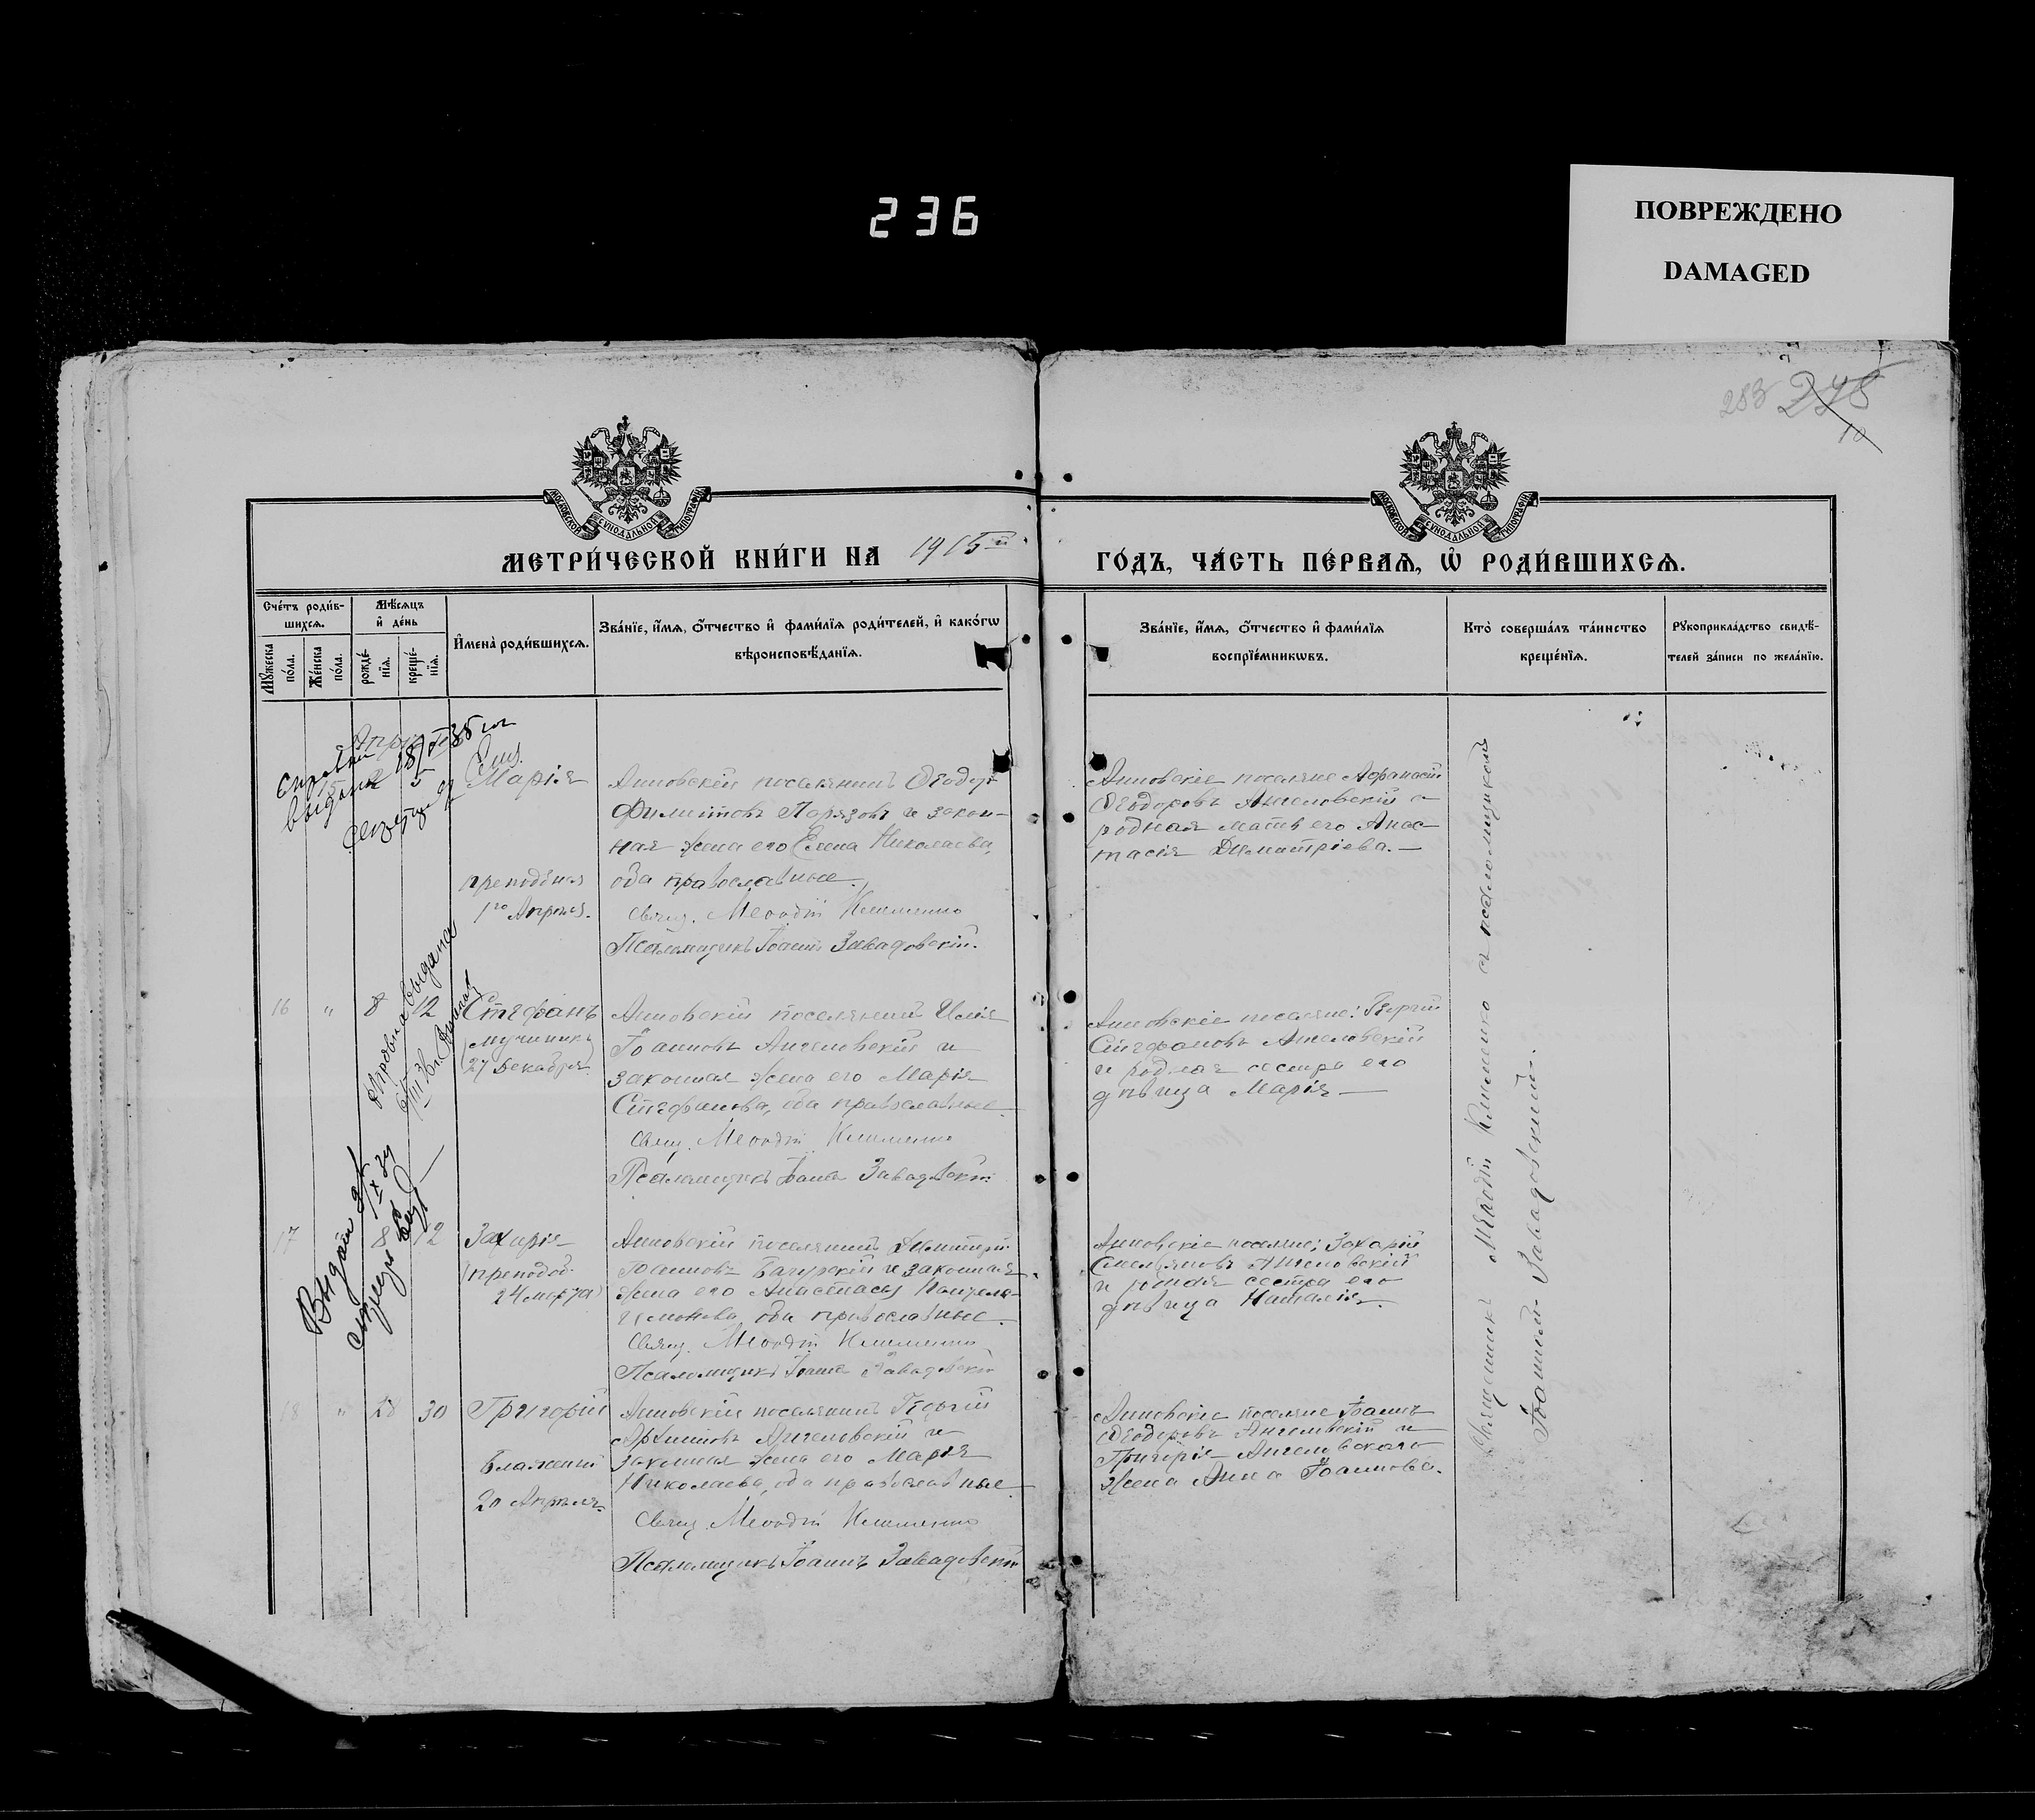 236
ПОВРЕЖДЕНО
DAMAGED
283 275
10
МОСКОВСКОЙ СѴНОДАЛЬНОЙ ТИПОГРАФІИ
МОСКОВСКОЙ СѴНОДАЛЬНОЙ ТИПОГРАФІИ
МЕТРИ́ЧЕСКОЙ КНИ́ГИ НА 1915й
ГО́ДЪ, ЧА́СТЬ ПЕ́РВАѦ, Ѡ҆ РОДИ́ВШИХСѦ.
Сче́тъ роди́в-
шихсѧ.
Мꙋ́жеска по́ла.
Же́нска по́ла.
Мѣ́сѧцъ
и҆ де́нь
рожде́-
нїѧ.
креще́-
нїѧ.
И҆мена̀ роди́вшихсѧ.
Зва́нїе, и҆́мѧ, ѻ҆́тчество и҆ фами́лїѧ роди́телей, и҆ како́гѡ
вѣроисповѣ́данїѧ.
Зва́нїе, и҆́мѧ, ѻ҆́тчество и҆ фами́лїѧ
воспрїе́мникѡвъ.
Кто̀ соверша́лъ та́инство
креще́нїѧ.
Рꙋкоприкла́дство свидѣ́-
телей за́писи по жела́нїю.
5
Марія
преподбная
1го Апрѣля.
Анновскій поселянинъ Ѳеодоръ
Филиповъ Порязовъ и закон-
ная жена его Елена Николаева,
оба православные.
Свящ. Меѳодій Клименко
Псаломщикъ Іоаннъ Завадовскій.
Анновскіе поселяне Аѳанасій
Ѳеодоровъ Ангеловскій и
родная мать его Анас-
тасія Димитріева.—
справка выдана
16 " 8 12
Стефанъ
(мученикъ
27 Декабря)
Анновскій поселянинъ Илія
Іоанновъ Ангеловскій и
законная жена его Марія
Стефанова, оба православные
Свящ. Меѳодій Клименко
Псаломщикъ Іоаннъ Завадовскій
Анновскіе поселяне: Георгій
Стефановъ Ангеловскій
и родная сестра его
дѣвица Марія—
Справка выдана
17 8 12
Захарія
(преподоб.
24 марта)
Анновскій поселянинъ Димитрій
Іоанновъ Бачурскій и законная
жена его Анастасія Пантеле-
имонова, оба православные.
Свящ. Меѳодій Клименко
Псаломщикъ Іоаннъ Завадовскій
Анновскіе поселяне: Захарій
Емельяновъ Ангеловскій
и родная сестра его
дѣвица Наталія.
18 " 28 30
Григорій
Блаженный
20 Апрѣля
Анновскій поселянинъ Георгій
Архиповъ Ангеловскій и
законная жена его Марія
Николаева, оба православные
Свящ. Меѳодій Клименко
Псаломщикъ Іоаннъ Завадовскій
Анновскіе поселяне Іоаннъ
Ѳеодоровъ Ангеловскій и
Григорія Ангеловскаго
жена Анна Іоаннова.
Священникъ Меѳодій Клименко съ псаломщикомъ
Іоанномъ Завадовскимъ.